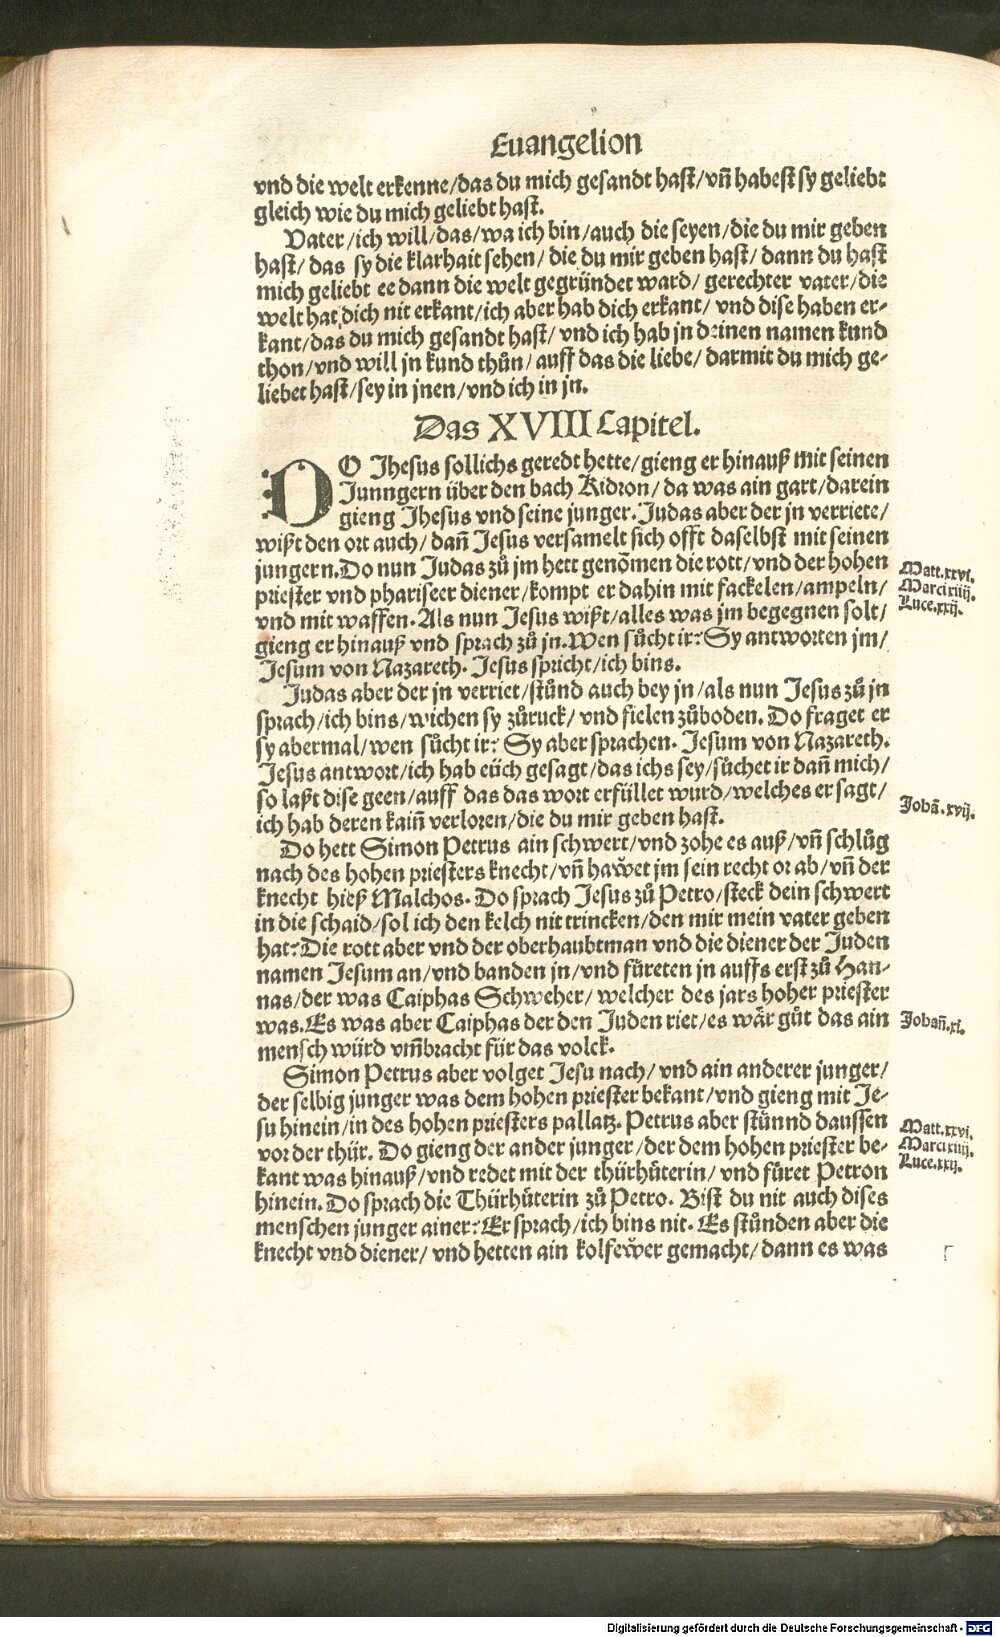 Euangelion
vnd die welt erkenne/das du mich gesandt hast/vñ habest sy geliebt
gleich wie du mich geliebt hast.
Vater/ich will/das/wa ich bin/auch die seyen/die du mir geben
hast/ das sy die klarhait sehen/ die du mir geben hast/ dann du hast
mich geliebt ee dann die welt gegründet ward/ gerechter vater/die
welt hat dich nit erkant/ich aber hab dich erkant/ vnd dise haben er-
kant/das du mich gesandt hast/ vnd ich hab jn deinen namen kund
thon/vnd will jn kund thůn/ auff das die liebe/ darmit du mich ge-
liebet hast/sey in jnen/vnd ich in jn.
Das XVIII Capitel.
DO Jhesus sollichs geredt hette/gieng er hinauß mit seinen
Junngern über den bach Kidron/ da was ain gart/darein
gieng Jhesus vnd seine junger. Judas aber der jn verriete/
wißt den ort auch/ dañ Jesus versamelt sich offt daselbst mit seinen
jungern. Do nun Judas zů jm hett genõmen die rott/vnd der hohen
priester vnd phariseer diener/kompt er dahin mit fackelen/ampeln/
vnd mit waffen. Als nun Jesus wißt/alles was jm begegnen solt/
gieng er hinauß vnd sprach zů jn. Wen sůcht ir? Sy antworten jm/
Jesum von Nazareth. Jesus spricht/ich bins.
Judas aber der jn verriet/stůnd auch bey jn/als nun Jesus zů jn
sprach/ich bins/wichen sy zůruck/ vnd fielen zůboden. Do fraget er
sy abermal/wen sůcht ir? Sy aber sprachen. Jesum von Nazareth.
Jesus antwort/ich hab eüch gesagt/das ichs sey/sůchet ir dañ mich/
so laßt dise geen/auff das das wort erfüllet wurd/welches er sagt/
ich hab deren kaiñ verloren/die du mir geben hast.
Do hett Simon Petrus ain schwert/vnd zohe es auß/vñ schlůg
nach des hohen priesters knecht/vñ haẅet jm sein recht or ab/vñ der
knecht hieß Malchos. Do sprach Jesus zů Petro/steck dein schwert
in die schaid/sol ich den kelch nit trincken/den mir mein vater geben
hat? Die rott aber vnd der oberhaubtman vnd die diener der Juden
namen Jesum an/vnd banden jn/vnd füreten jn auffs erst zů Han-
nas/der was Caiphas Schweher/ welcher des jars hoher priester
was. Es was aber Caiphas der den Juden riet/es wår gůt das ain
mensch würd vm̃bracht für das volck.
Simon Petrus aber volget Jesu nach/ vnd ain anderer junger/
der selbig junger was dem hohen priester bekant/vnd gieng mit Je-
su hinein/in des hohen priesters pallatz. Petrus aber stůnnd daussen
vor der thür. Do gieng der ander junger/der dem hohen priester be-
kant was hinauß/vnd redet mit der thürhůterin/ vnd füret Petron
hinein. Do sprach die Thürhůterin zů Petro. Bist du nit auch dises
menschen junger ainer? Er sprach/ich bins nit. Es stůnden aber die
knecht vnd diener/ vnd hetten ain kolfeẅer gemacht/dann es was
Matt.xxvi.
Marci xiiij.
Luce.xxij.
Johã.xvij.
Johañ.xi.
Matt.xxvi.
Marci xiiij.
Luce.xxij.
Digitalisierung gefördert durch die Deutsche Forschungsgemeinschaft - DFG